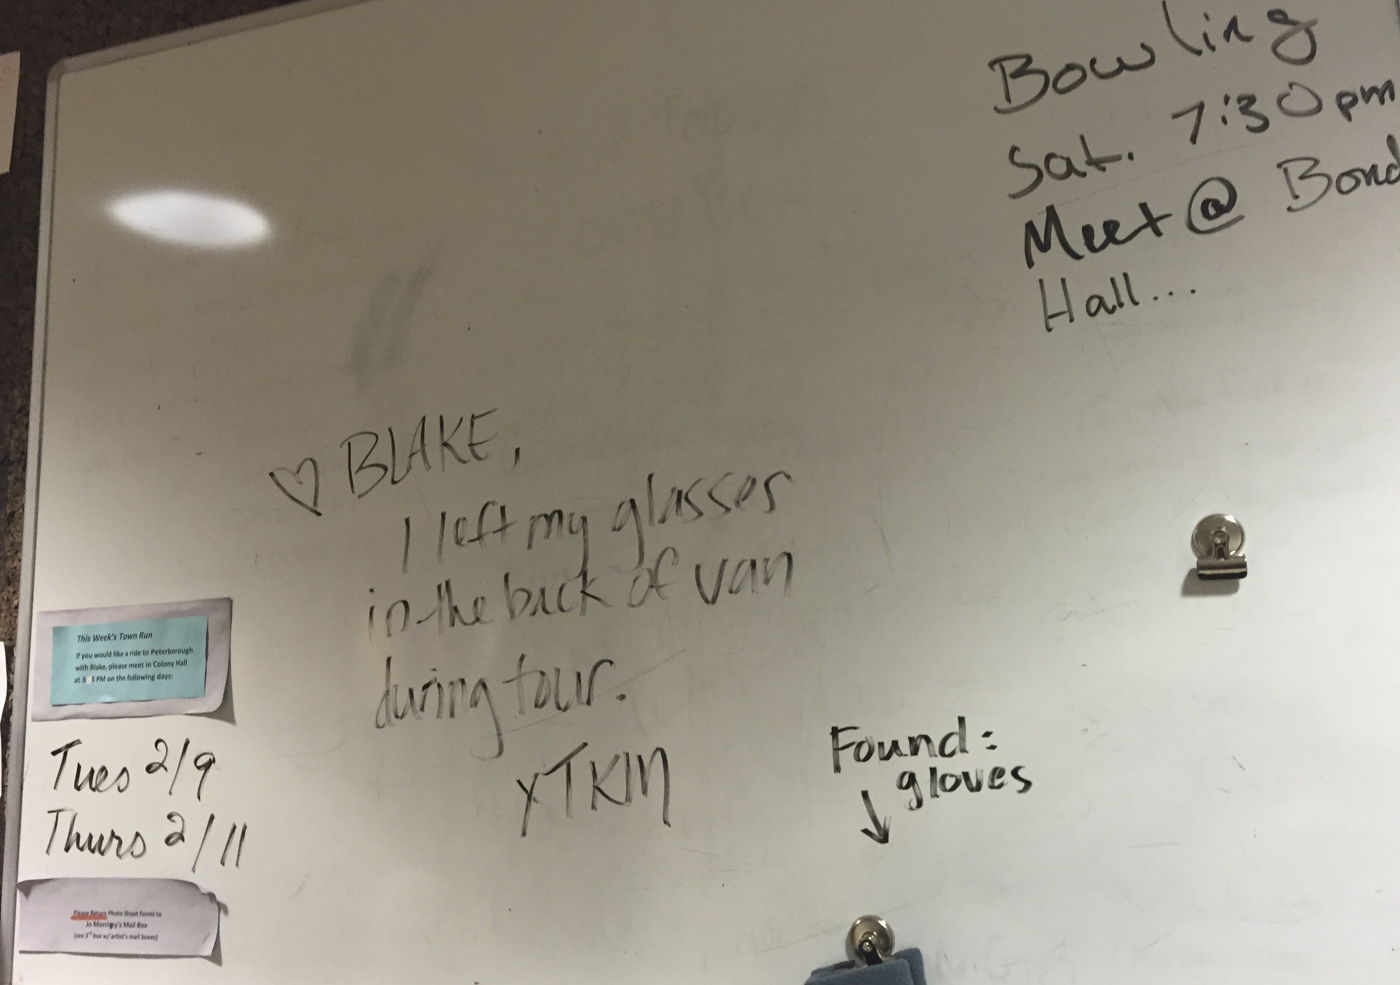 Bowling
Sat. 7:30pm
Meet @ Bond
Hall...
♡ BLAKE,
I left my glasses
in the back of van
during tour.
This Week's Town Run
If you would like a ride to Peterborough
with Blake, please meet in Colony Hall
at 3 5 PM on the following days:
Tues 2/9
Thurs 2/11
Found:
gloves
↓
Please Return Photo Shoot Forms to
Jo Morrissey's Mail Box
(see 3rd box w/ artist's mail boxes)